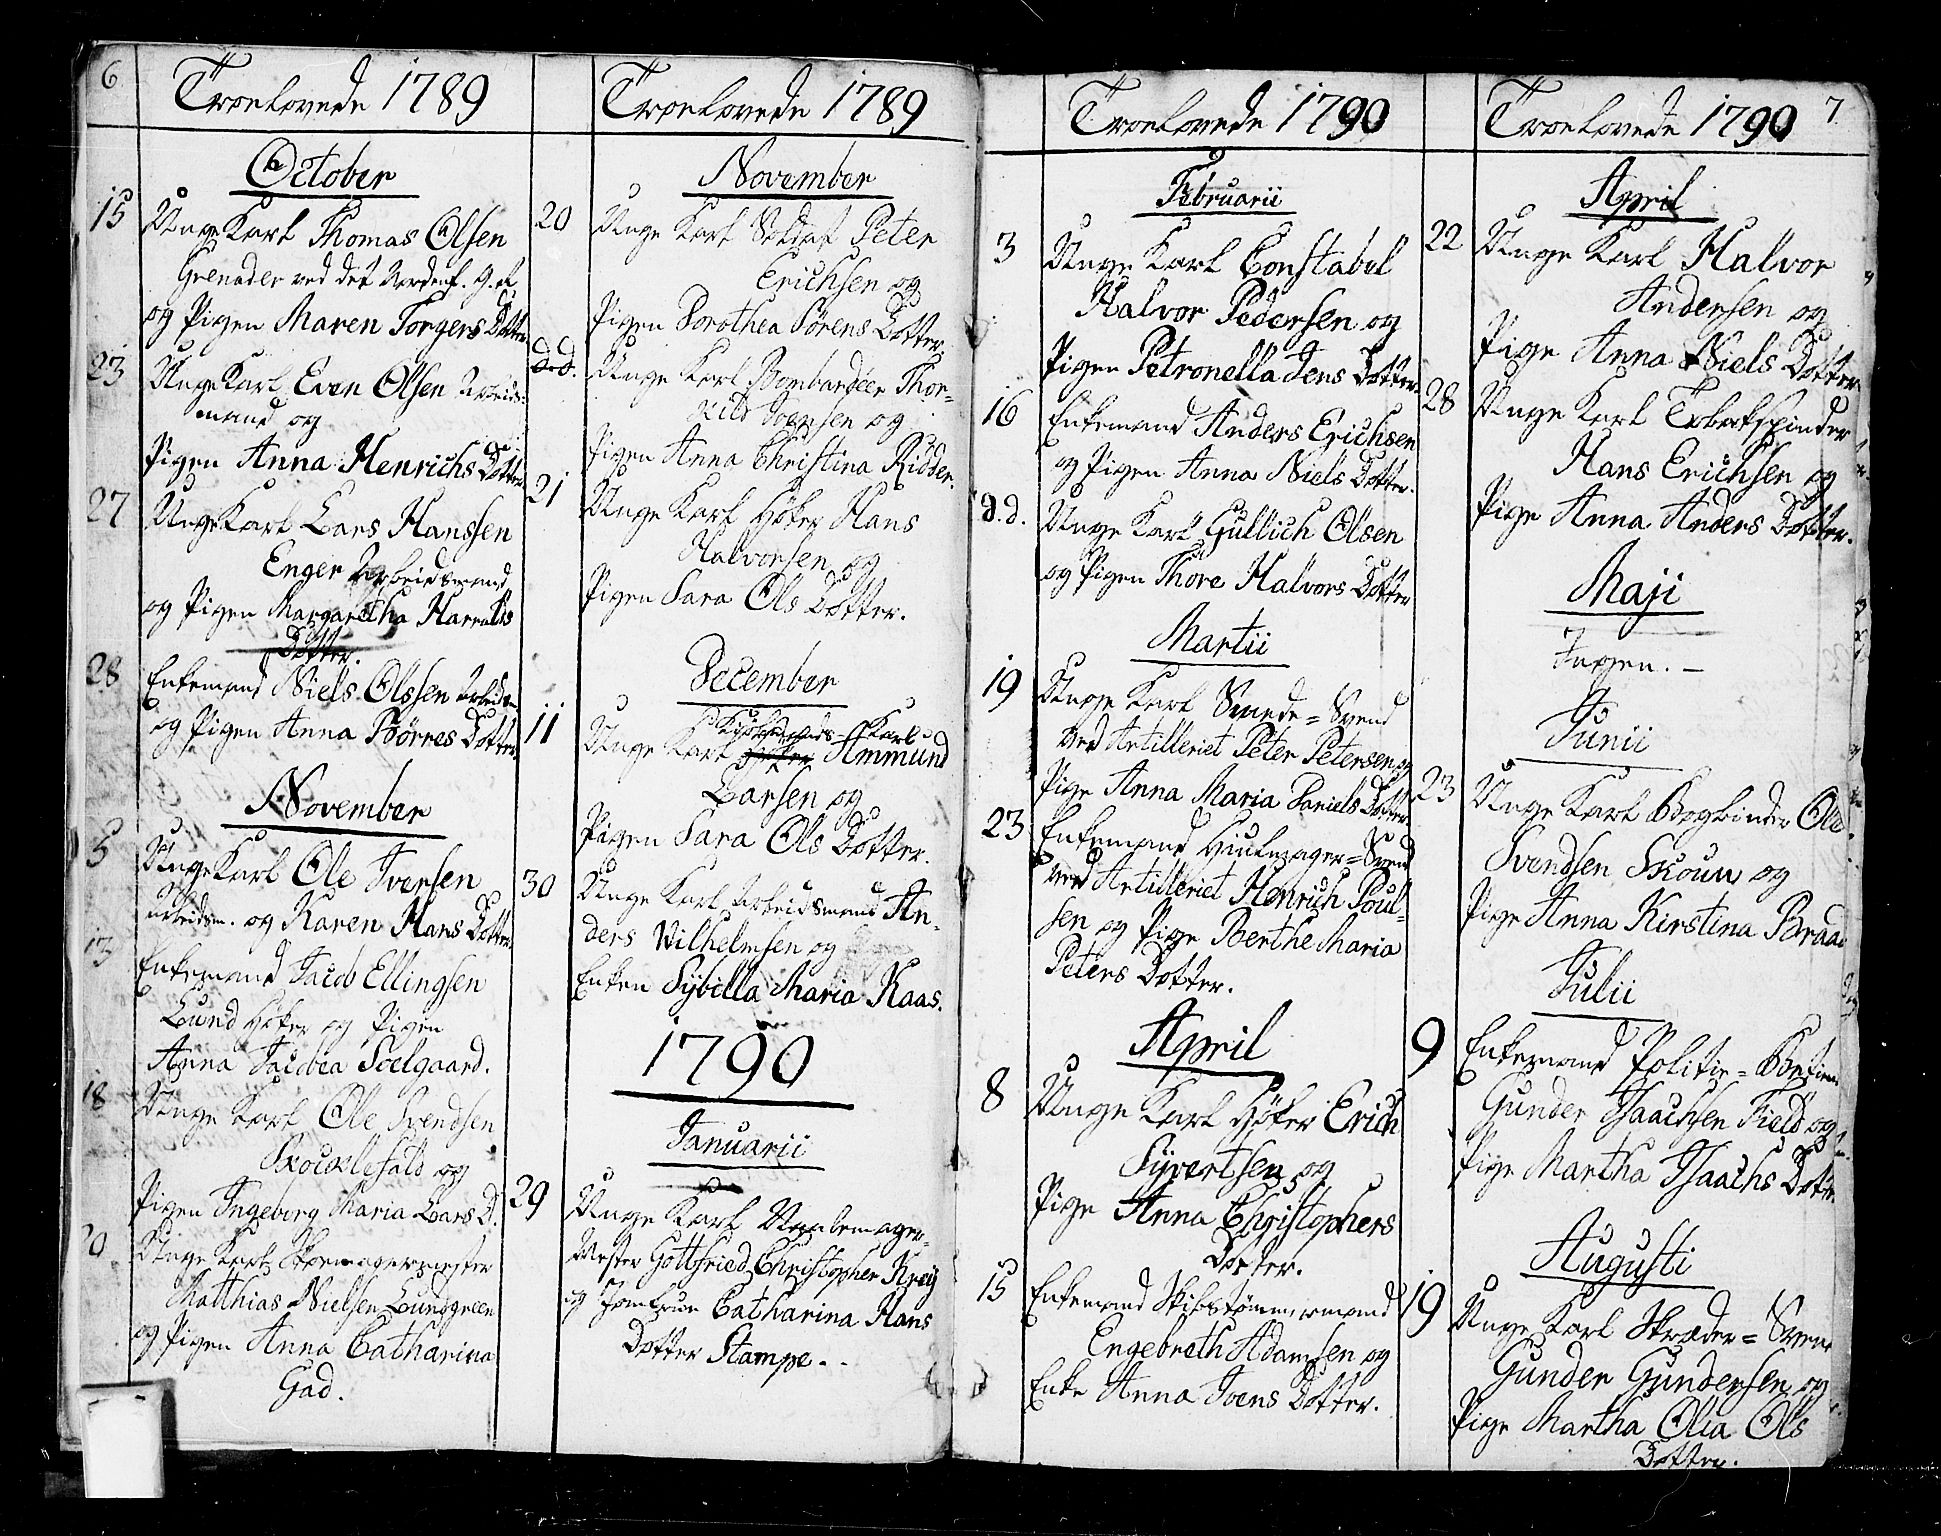 6
Troelovede 1789
October
15 Unge Karl Thomas Olsen
Grenader ved det Nordenf. g. et
og Pigen Maren Torgers Dotter
23 Unge Karl Even Olsen Arbeids-
mand og
Pigen Anna Henrichs Dotter
27 Unge Karl Lars Hanssen
Enger Arbeidsmand
og Pigen Margaretha Harralds
Dotter.
28 Enkemand Niels Olssen Arbeidsm
og Pigen Anna Børres Dotter
November
5 Unge Karl Ole Iversen
Arbeidsm. og Karen Hans Dotter
13 Enkemand Jacob Ellingsen
Lund Høker og Pigen
Anna Jacobea Soelgaard.
18 Unge Karl Ole Svendsen
og
Pigen Ingeborg Maria Lars D.
20 Unge Karl Skoemagermester
Matthias Nielsen Lundgreen
og Pigen Anna Catharina
Gad.
Troelovede 1789
November
20 Unge Karl Soldat Peter
Erichsen og
Pigen Dorothea Sørens Dotter
d.d. Unge Karl Bombardeer Thor-
kild Svensen og
Pigen Anna Christina Ridder.
21 Unge Karl Høker Hans
Halvorsen og
Pigen Sara Ols Dotter.
December
Kiøbmands Karl
11 Unge Karl Høker Ammund
Larsen og
Pigen Sara Ols Dotter.
30 Unge Karl Arbeidsmand An-
ders Wilhelmsen og
Enken Sybilla Maria Kaas.
1790
Januarii
29 Unge Karl
Mester Gottfried Christopher Kreij
og Jomfrue Catharina Hans
Dotter Stampe.
Troelovede 1790
Februarii
3 Unge Karl Constabel
Halvor Pedersen og
Pigen Petronella Jens Dotter.
16 Enkemand Anders Erichsen
og Pigen Anna Niels Dotter.
d.d. Unge Karl Gullich Olsen
og Pigen Thore Halvors Dotter
Martii
19 Unge Karl Smede=Svend
ved Artilleriet Peter Petersen og
Pige Anna Maria Daniels Dotter
23 Enkemand Hiulmager=Svend
ved Artilleriet Henrich Poul-
sen og Pige Berthe Maria
Peters Dotter.
April
8 Unge Karl Høker Erich
Syvertsen og
Pige Anna Christophers
Dotter.
15 Enkemand Skibstømmermand
Engebreth Adamsen og
Enke Anna Ivers Dotter.
Troelovede 1790
7
April
22 Unge Karl Halvor
Andersen og
Pige Anna Niels Dotter
28 Unge Karl Tobakspinder
Hans Erichsen og
Pige Anna Anders Dotter.
Maji
Ingen. –
Junii
23 Unge Karl Bogbinder Ole
Svendsen Skouw og
Pige Anna Kirstina Braa
Julii
9 Enkemand Politie=Betient
Gunder Isaachsen Field og
Pige Martha Isaachs Dotter
Augusti
19 Unge Karl Skræder=Svend
Gunder Gundersen og
Pige Martha Olia Ols
Dotter.